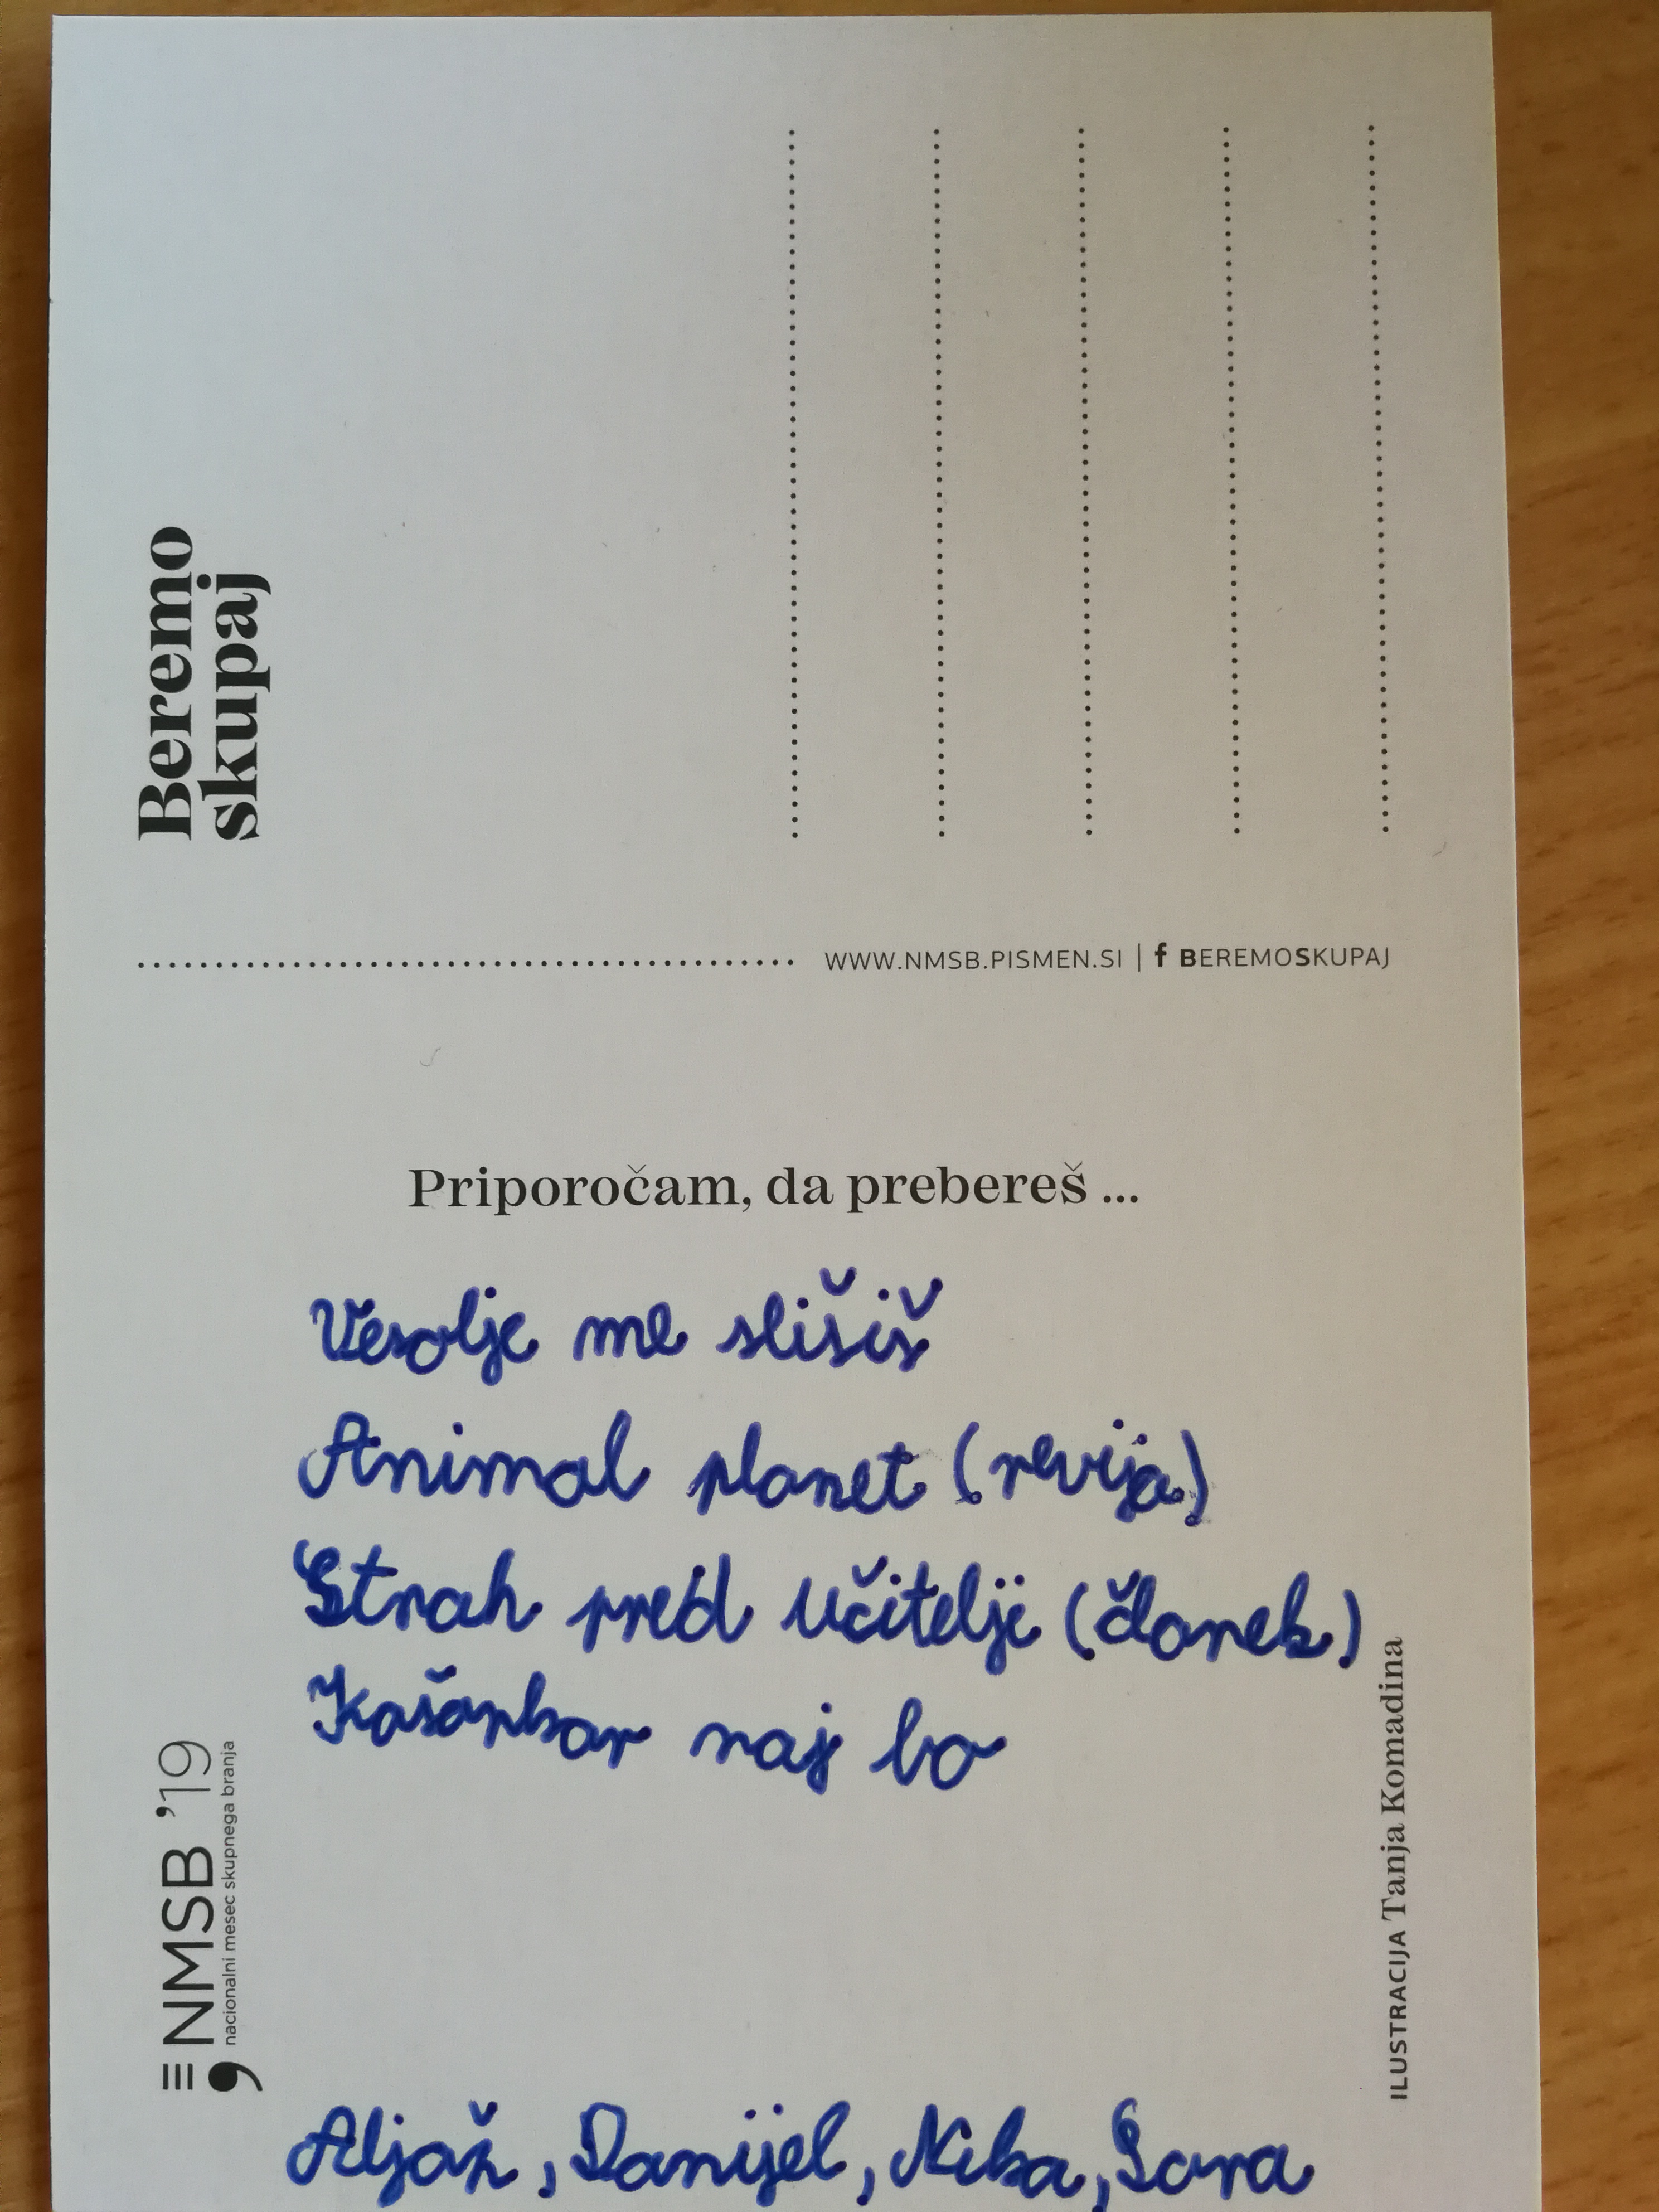 Beremo
skupaj
WWW.NMSB.PISMEN.SI | f BEREMOSKUPAJ
Priporočam, da prebereš ...
Vesolje me slišiš
Animal planet (revija)
Strah pred učitelji (članek)
Košarkar naj bo
NMSB '19
nacionalni mesec skupnega branja
ILUSTRACIJA Tanja Komadina
Aljaž, Danijel, Nika, Sara